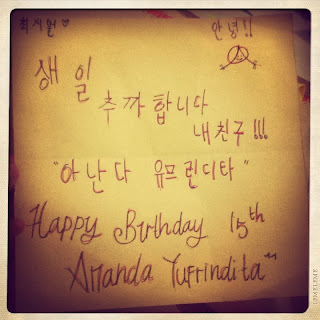 최시원 안녕!!
새 일
추까합니다
내친구!!!
"아난다 유프린디타"
Happy Birthday 15th
Amanda Yufrindita™